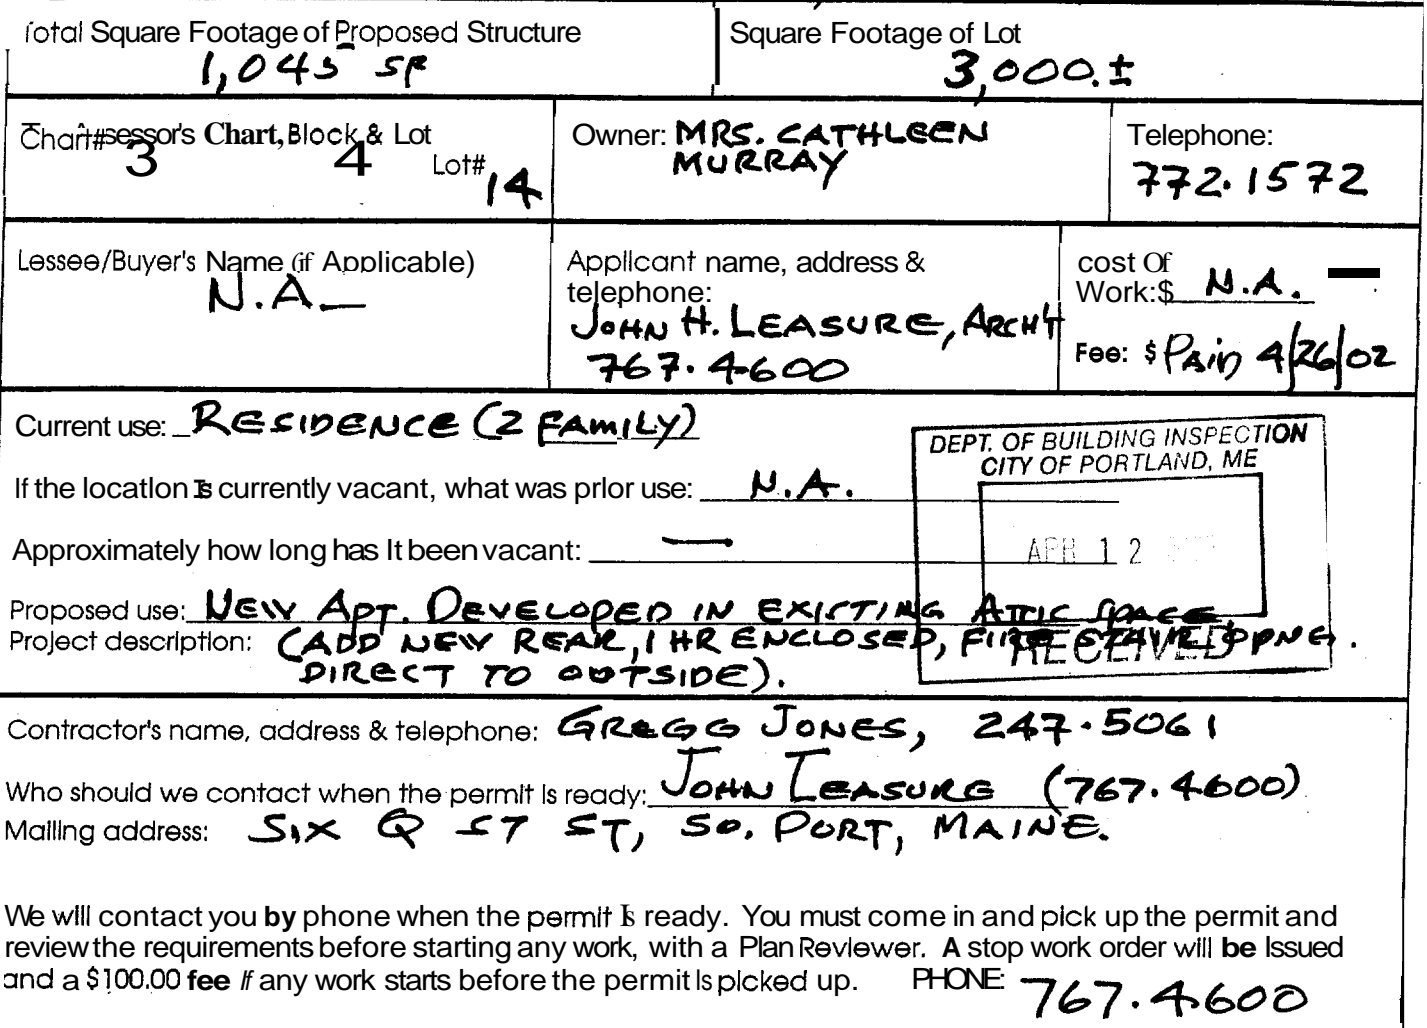 Total Square Footage of Proposed Structure
1,045 SF
Square Footage of Lot
3,000.±
Chart, Block & Lot
Chart# 3 4 Lot# 14
Owner: MRS. CATHLEEN
MURRAY
Telephone:
772.1572
Lessee/Buyer's Name (if Applicable)
N.A.
Applicant name, address &
telephone:
JOHN H. LEASURE, ARCH'T
767.4600
cost Of
Work: $ N.A.
Fee: $ PAID 4/26/02
Current use: RESIDENCE (2 FAMILY)
If the location Is currently vacant, what was prior use: N.A.
Approximately how long has It been vacant: —
DEPT. OF BUILDING INSPECTION
CITY OF PORTLAND, ME
APR 12
RECEIVED
Proposed use: NEW APT. DEVELOPED IN EXISTING ATTIC SPACE
Project description: (ADD NEW REAR, 1 HR ENCLOSED, FIRE
DIRECT TO OUTSIDE).
Contractor's name, address & telephone: GREGG JONES, 247.5061
Who should we contact when the permit is ready: JOHN LEASURE (767.4600)
Mailing address: SIX Q ST ST, SO. PORT, MAINE.
We will contact you by phone when the permit Is ready. You must come in and pick up the permit and
review the requirements before starting any work, with a Plan Reviewer. A stop work order will be Issued
and a $100.00 fee if any work starts before the permit is picked up. PHONE: 767.4600